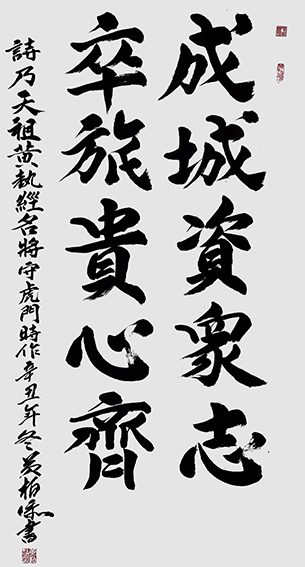 成城資衆志
卒旅貴心齊
詩乃天祖黄執經名將守虎門時作辛丑年冬黄柏
書